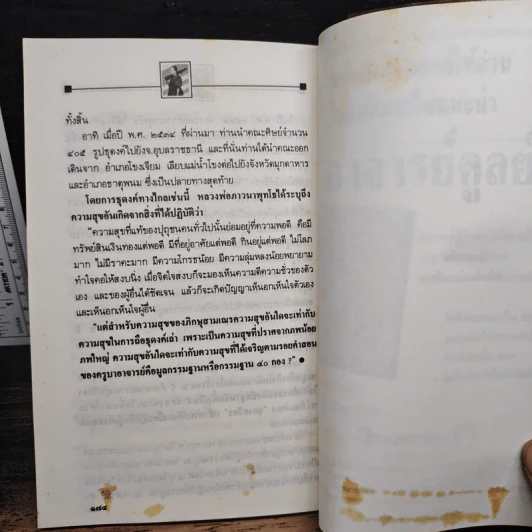 ทั้งสิ้น
อาทิ เมื่อปี พ.ศ. ๒๕๓๔ ที่ผ่านมา ท่านนำคณะศิษย์จำนวน
๔๐๕ รูปธุดงค์ไปยังจ.อุบลราชธานี และที่นั่นท่านได้นำคณะออก
เดินจาก อำเภอโขงเจียม เลียบแม่น้ำโขงต่อไปยังจังหวัดมุกดาหาร
และอำเภอธาตุพนม ซึ่งเป็นปลายทางสุดท้าย
โดยการธุดงค์ทางไกลเช่นนี้ หลวงพ่อภาวนาพุทโธได้ระบุถึง
ความสุขอันเกิดจากสิ่งที่ได้ปฏิบัติว่า
"ความสุขที่แท้ของปุถุชนคนทั่วไปนั้นย่อมอยู่ที่ความพอดี คือมี
ทรัพย์สินเงินทองแต่พอดี มีที่อยู่อาศัยแต่พอดี กินอยู่แต่พอดี ไม่โลภ
มาก ไม่มีราคะมาก มีความโกรธน้อย มีความลุ่มหลงน้อยพยายาม
ทำใจคอให้สงบนิ่ง เมื่อจิตใจสงบก็จะมองเห็นความดีความชั่วของตัว
เอง และของผู้อื่นได้ชัดเจน แล้วก็จะเกิดปัญญาเห็นอกเห็นใจตัวเอง
และเห็นอกเห็นใจผู้อื่น
"แต่สำหรับความสุขของภิกษุสามเณรความสุขอันใดจะเท่ากับ
ความสุขในการถือธุดงค์เล่า เพราะเป็นความสุขที่ปราศจากภพน้อย
ภพใหญ่ ความสุขอันใดจะเท่ากับความสุขที่ได้เจริญตามรอยคำสอน
ของครูบาอาจารย์คือมูลกรรมฐานหรือกรรมฐาน ๔๐ กอง ?" ●
๑๗๔